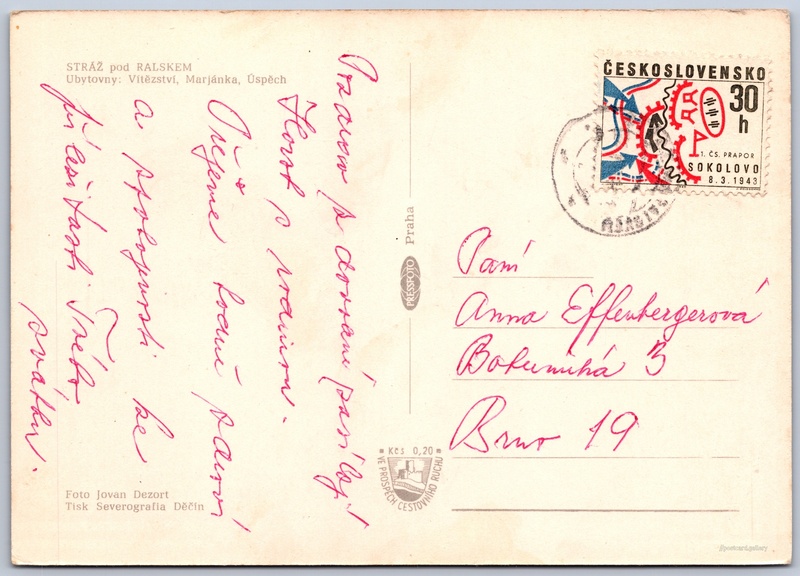 STRÁŽ pod RALSKEM
Ubytovny: Vítězství, Marjánka, Úspěch
Pozdrav z dovolené zasílají
Horst s rodinou.
Přejeme hodně zdraví
a spokojenosti ke
příležitosti Tvého
svátku.
Foto Jovan Dezort
Tisk Severografia Děčín
PRESSFOTO Praha
Kčs 0,20
VE PROSPĚCH CESTOVNÍHO RUCHU
ČESKOSLOVENSKO
30
h
1. ČS. PRAPOR
SOKOLOVO
8.3.1943
Paní
Anna Effenbergerová
Bohumihá 3
Brno 19
postcard.gallery